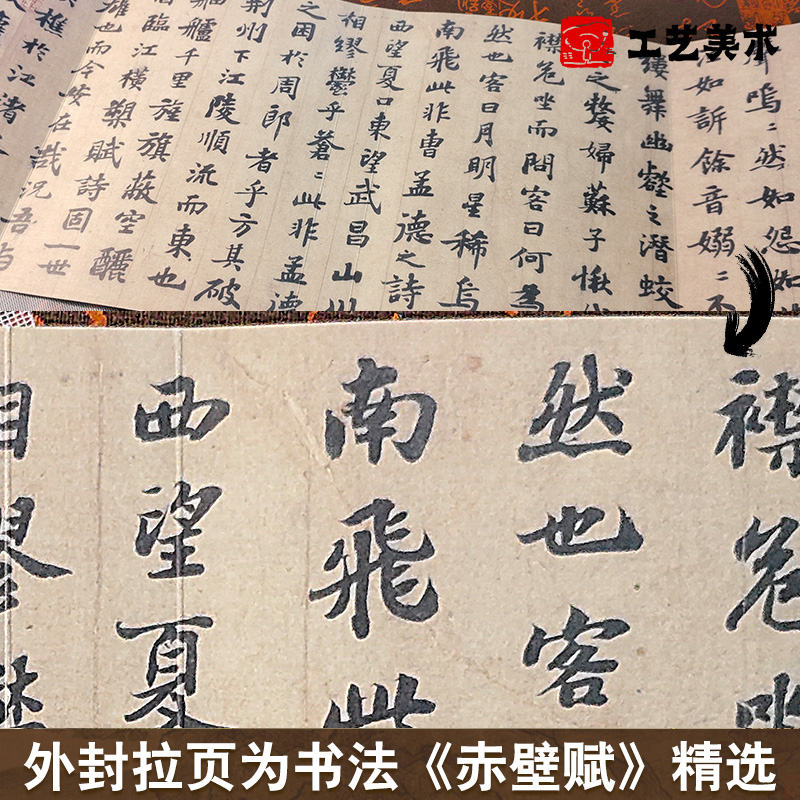 工艺美术
嗚〻然如怨如
如訴餘音嫋〻不
縷舞幽壑之潛蛟
之嫠婦蘇子愀
襟危坐而問客曰何為
然也客曰月明星稀烏
南飛此非曹孟德之詩
西望夏口東望武昌山川
相繆鬱乎蒼〻此非孟德
之困於周郎者乎方其破
荊州下江陵順流而東也
艫千里旌旗蔽空釃
臨江橫槊賦詩固一世
雄也而今安在哉況吾
樵於江渚
襟危坐
然也客
南飛此
西望夏
相繆鬱
外封拉页为书法《赤壁赋》精选